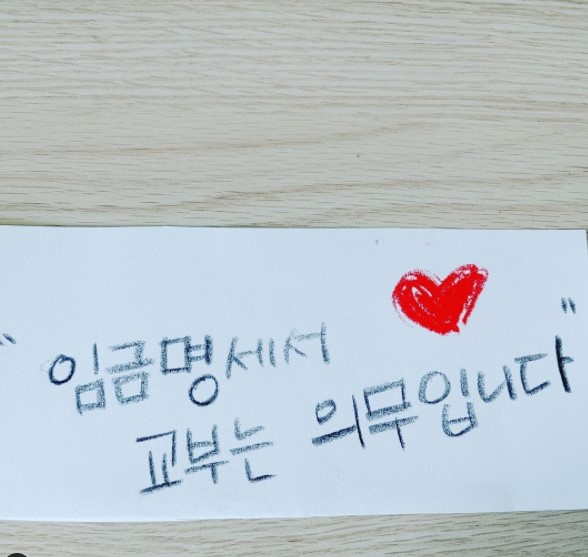 "임금명세서
교부는 의무입니다"